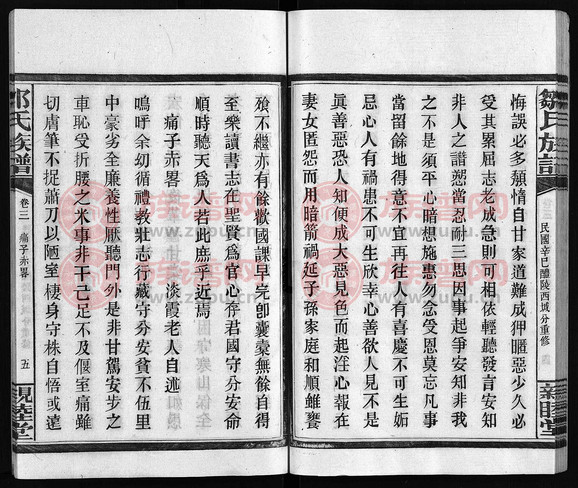 鄒氏族譜
卷三
民國辛巳醴陵西城分重修
親睦堂
悔誤必多頹惰自甘家道難成狎暱惡少久必
受其累屈志老成急則可相依輕聽發言安知
非人之譖愬當忍耐三思因事起爭安知非我
之不是須平心暗想施惠勿念受恩莫忘凡事
當留餘地得意不宜再往人有喜慶不可生妬
忌心人有禍患不可生欣幸心善欲人見不是
眞善惡恐人知便成大惡見色而起淫心報在
妻女匿怨而用暗箭禍延子孫家庭和順雖饔
飱不繼亦有餘歡國課早完卽囊橐無餘自得
至樂讀書志在聖賢爲官心存君國守分安命
順時聽天爲人若此庶乎近焉
淡霞老人自述
痛子赤畧
嗚呼余幼循禮教壯志行藏守分安貧不伍里
中豪劣全廉養性厭聽門外是非甘駕安步之
車恥受折腰之米事非干己足不及偃室痛雖
切膚筆不捉蕭刀以陋室棲身守株自悟或遠
鄒氏族譜
卷三
痛子赤畧
五
親睦堂
族譜网
www.zupu.cn